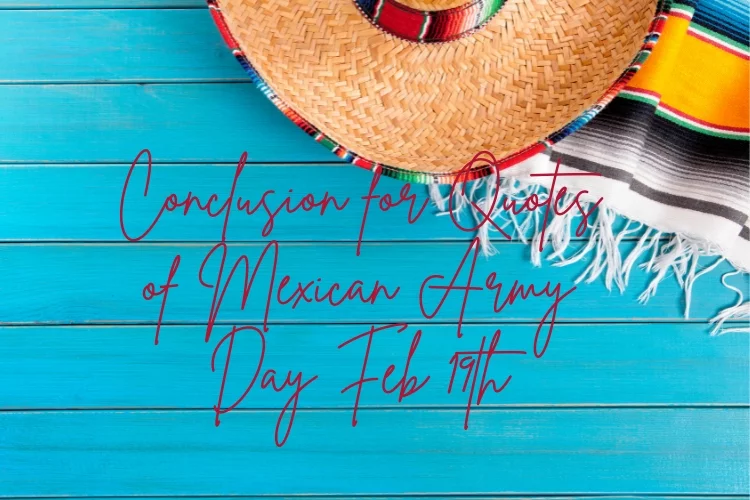 Conclusion for Quotes
of Mexican Army
Day Feb 19th